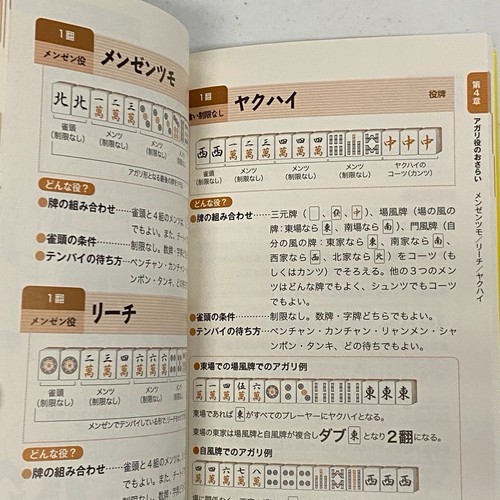 1翻
メンゼン役
メンゼンツモ
北 北 一萬 二萬 三萬
雀頭
(制限なし)
メンツ
(制限なし)
メンツ
(制限なし)
アガリ形となる最後の牌を
どんな役?
●牌の組み合わせ……雀頭と4組のメン
でもよい。また、チー
●雀頭の条件……制限なし。数牌・字牌
●テンパイの待ち方…ペンチャン・カンチャン
ンポン・タンキ、どの
1翻
メンゼン役
リーチ
二萬 三萬 四萬 六萬 六萬 六萬
雀頭
(制限なし)
メンツ
(制限なし)
メンツ
(制限なし)
メンゼンでテンパイしている形で、リーチを
どんな役?
●牌の組み合わせ……雀頭と4組のメンツ
でもよい。また、チー
1翻
食い制限なし
ヤクハイ
役牌
西 西 一萬 二萬 三萬 四萬 四萬 四萬 中 中 中
雀頭
(制限なし)
メンツ
(制限なし)
メンツ
(制限なし)
メンツ
(制限なし)
ヤクハイの
コーツ(カンツ)
どんな役?
●牌の組み合わせ……三元牌(、發、中)、場風牌(場の風の
牌:東場なら東、南場なら南)、門風牌(自
分の風の牌:東家なら東、南家なら南、
西家なら西、北家なら北)をコーツ(も
しくはカンツ)でそろえる。他の3つのメン
ツはどんな牌でもよく、シュンツでもコーツ
でもよい。
●雀頭の条件……制限なし。数牌・字牌どちらでもよい。
●テンパイの待ち方…ペンチャン・カンチャン・リャンメン・シャ
ンポン・タンキ、どの待ちでもよい。
●東場での場風牌でのアガリ例
一萬 一萬 四萬 伍萬 六萬 東 東 東
東場であれば東がすべてのプレーヤーにヤクハイとなる。
東場の東家は場風牌と自風牌が複合しダブ東となり2翻になる。
●自風牌でのアガリ例
四萬 四萬 六萬 七萬 八萬 西 西 西
第4章
アガリ役のおさらい
メンゼンツモ/リーチ/ヤクハイ